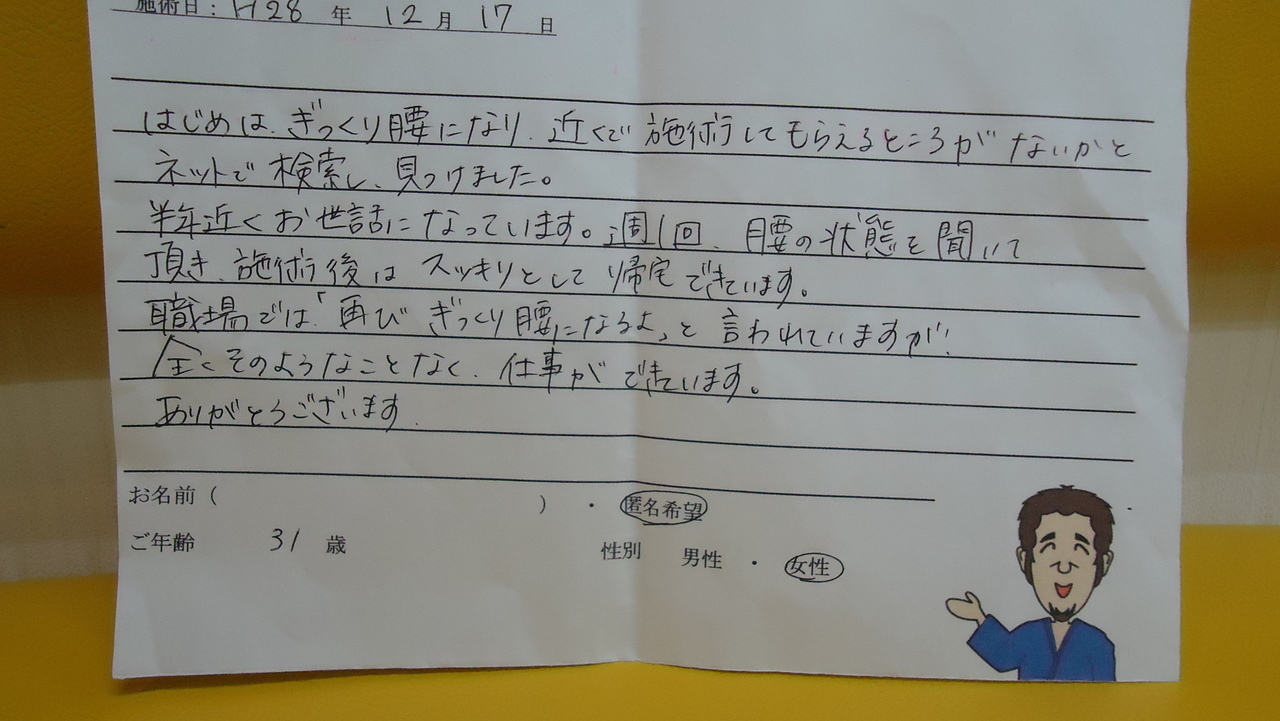 施術日：H28 年 12 月 17 日
はじめは、ぎっくり腰になり、近くで施術してもらえるところがないかと
ネットで検索し、見つけました。
半年近くお世話になっています。週1回、腰の状態を聞いて
頂き、施術後はスッキリとして帰宅できています。
職場では「再びぎっくり腰になるよ」と言われていますが、
全くそのようなことなく、仕事ができています。
ありがとうございます.
お名前（ ）・匿名希望
ご年齢 31 歳 性別 男性・女性